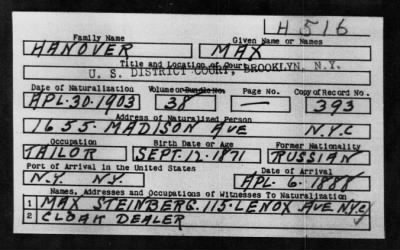 H 516
Family Name Given Name or Names
HANOVER MAX
Title and Location of Court
U. S. DISTRICT COURT, BROOKLYN, N.Y.
Date of Naturalization Volume or Bundle No. Page No. Copy of Record No.
APL. 30. 1903 38 — 393
Address of Naturalized Person
1655. MADISON AVE N.Y.C
Occupation Birth Date or Age Former Nationality
TAILOR SEPT. 12. 1871 RUSSIAN
Port of Arrival in the United States Date of Arrival
N.Y. N.Y. APL. 6. 1888
Names, Addresses and Occupations of Witnesses To Naturalization
1 MAX STEINBERG. 115. LENOX AVE N.Y.C
2 CLOAK DEALER